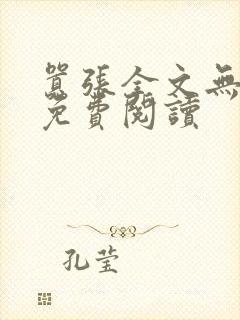 囂張全文無
免費閱讀
孔莹